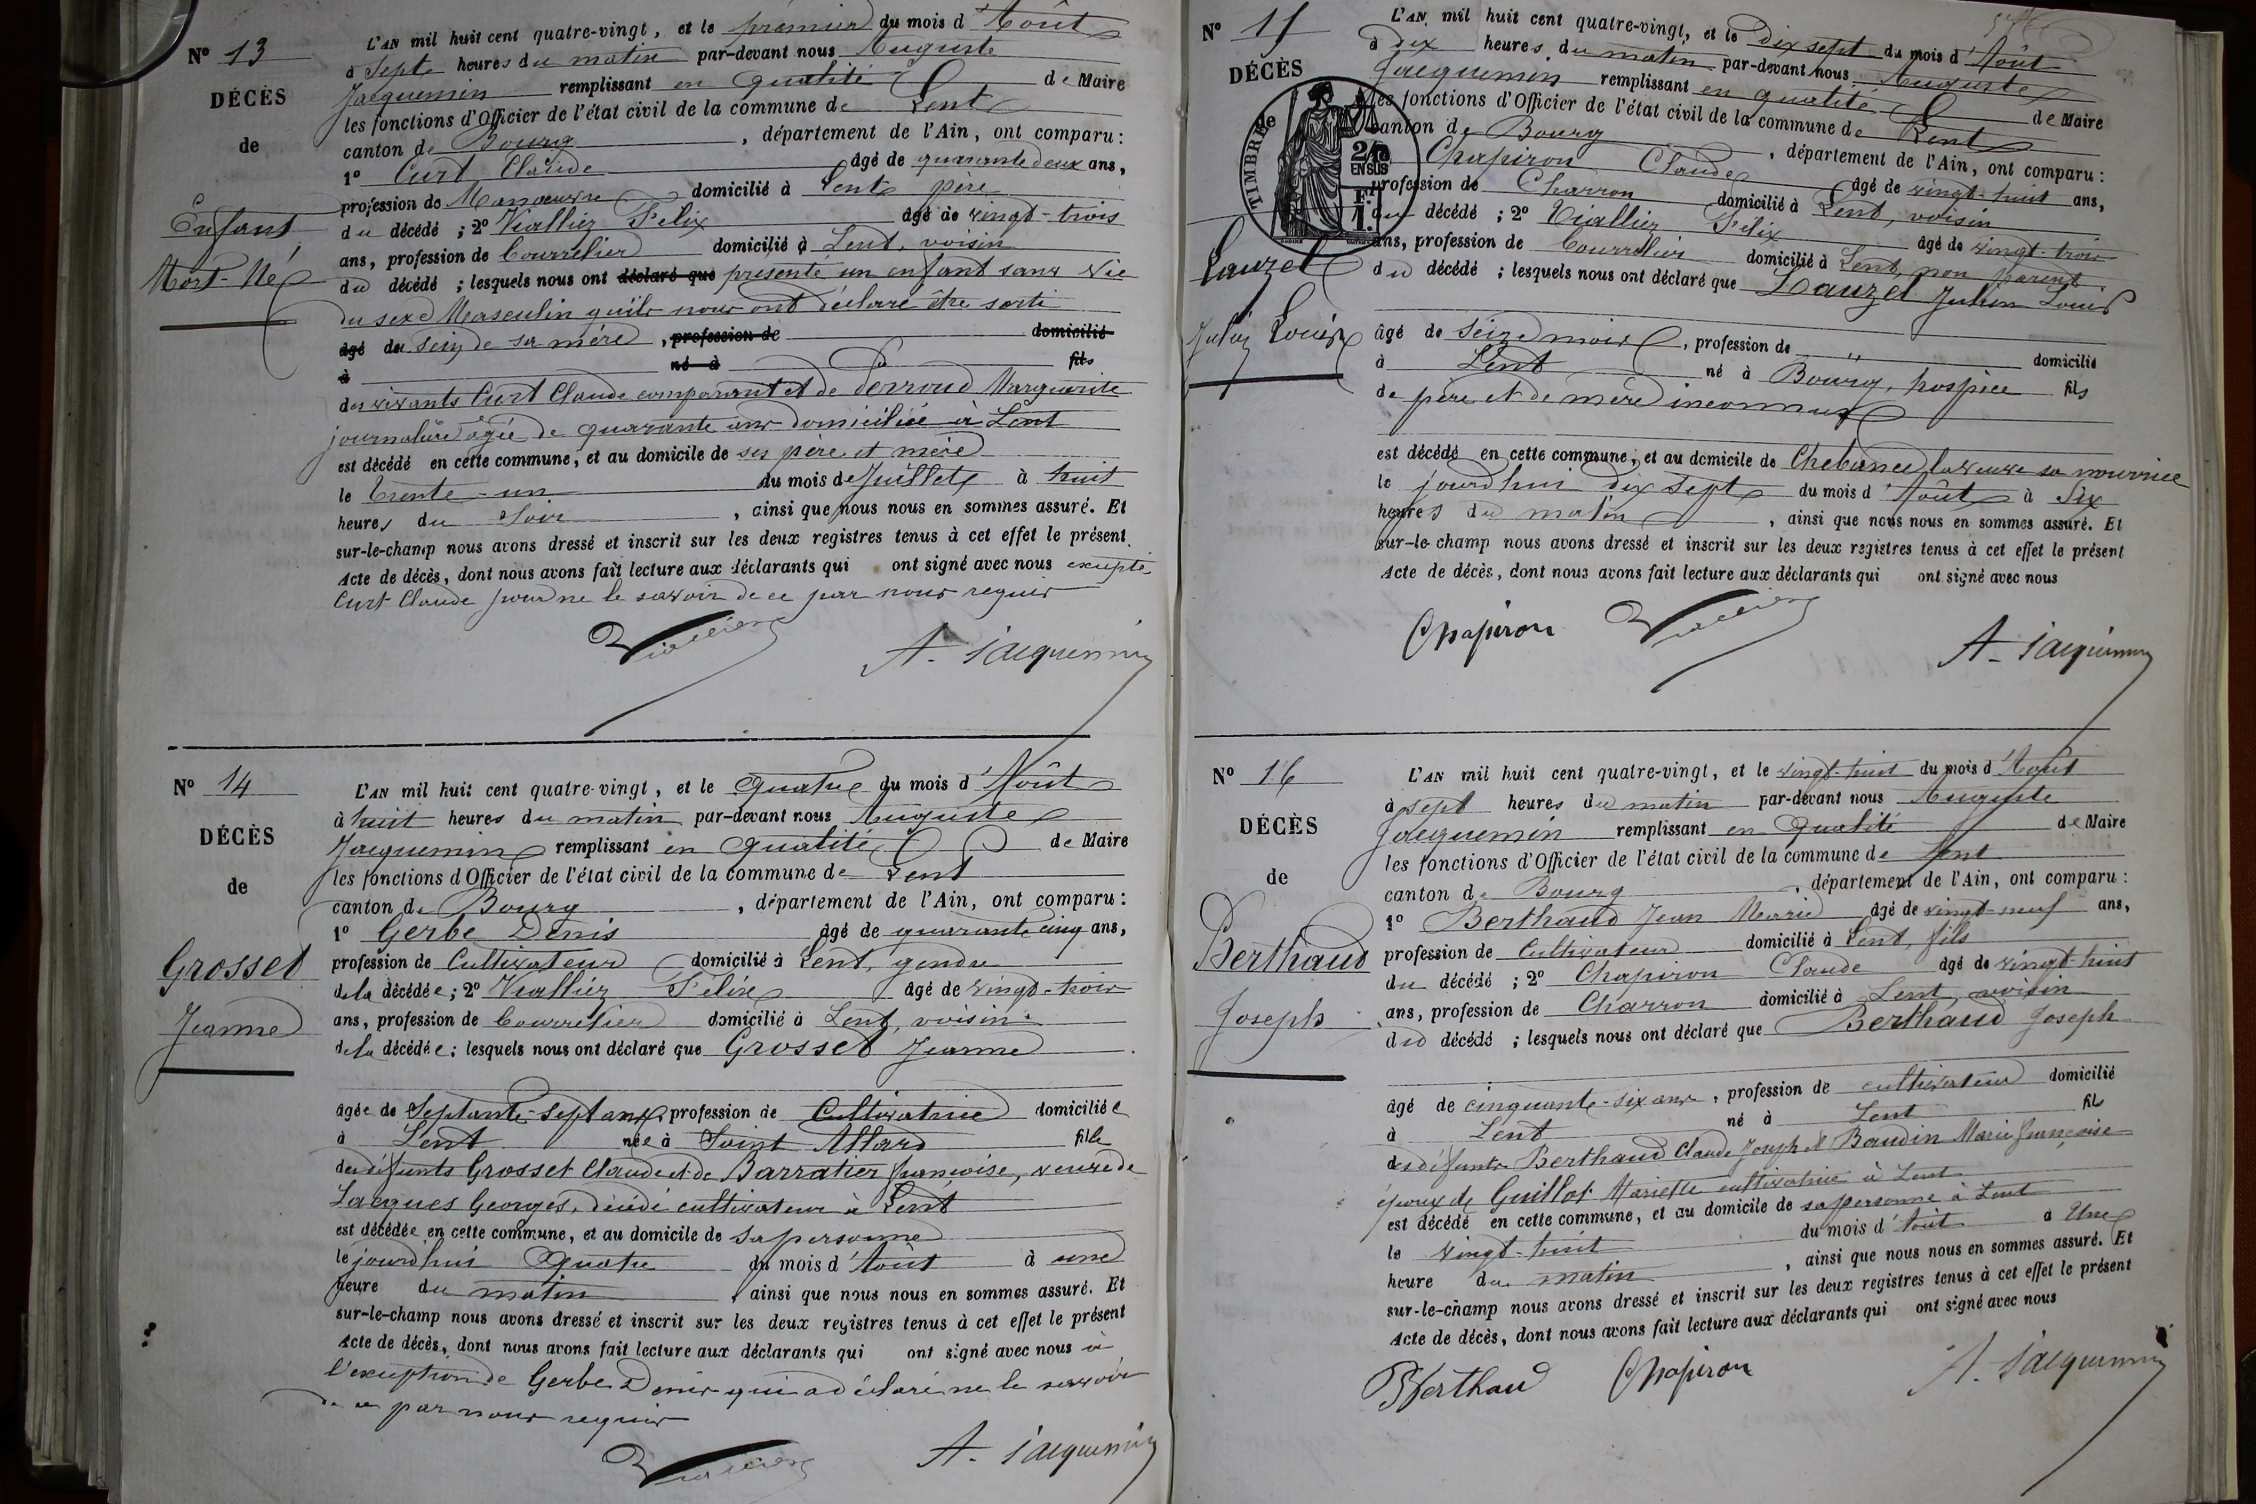 N° 13
DÉCÈS
de
Enfant
Mort-Né
L'AN mil huit cent quatre-vingt, et le premier du mois d'Août
à Sept heures du matin par-devant nous Auguste
Jacquemin remplissant en qualité de Maire
les fonctions d'Officier de l'état civil de la commune de Lent
canton de Bourg, département de l'Ain, ont comparu:
1° Curt Claude âgé de quarante deux ans,
profession de Manoeuvre domicilié à Lent père
du décédé; 2° Viallier Felix âgé de vingt-trois
ans, profession de Bourrelier domicilié à Lent, voisin
du décédé; lesquels nous ont déclaré que présenté un enfant sans vie
du sexe Masculin qu'ils nous ont déclaré être sorti
âgé du sein de sa mère, profession de domicilié
à né à fils
des vivants Curt Claude comparant et de Perroud Marguerite
journalière âgée de quarante ans domiciliée à Lent
est décédé en cette commune, et au domicile de ses père et mère
le trente-un du mois de Juillet à huit
heures du soir, ainsi que nous nous en sommes assuré. Et
sur-le-champ nous avons dressé et inscrit sur les deux registres tenus à cet effet le présent
Acte de décès, dont nous avons fait lecture aux déclarants qui ont signé avec nous excepté
Curt Claude pour ne le savoir de ce par nous requis
Viallier A. Jacquemin
N° 14
DÉCÈS
de
Grosset
Jeanne
L'AN mil huit cent quatre-vingt, et le quatre du mois d'Août
à huit heures du matin par-devant nous Auguste
Jacquemin remplissant en qualité de Maire
les fonctions d'Officier de l'état civil de la commune de Lent
canton de Bourg, département de l'Ain, ont comparu:
1° Gerbe Denis âgé de quarante cinq ans,
profession de Cultivateur domicilié à Lent, gendre
de la décédée; 2° Viallier Felix âgé de vingt-trois
ans, profession de Bourrelier domicilié à Lent, voisin
de la décédée; lesquels nous ont déclaré que Grosset Jeanne
âgée de Septante-sept ans, profession de Cultivatrice domiciliée
à Lent née à Saint Allard fille
des défunts Grosset Claude et de Barratier françoise, veuve de
Jacques Georges, décédé cultivateur à Lent
est décédée en cette commune, et au domicile de sa personne
le jourd'hui Quatre du mois d'Août à une
heure du matin, ainsi que nous nous en sommes assuré. Et
sur-le-champ nous avons dressé et inscrit sur les deux registres tenus à cet effet le présent
Acte de décès, dont nous avons fait lecture aux déclarants qui ont signé avec nous à
l'exception de Gerbe Denis qui a déclaré ne le savoir
de ce par nous requis
Viallier A. Jacquemin
N° 15
DÉCÈS
de
Lauzel
Julien Louis
TIMBRE
2/10 EN SUS
F.
1.
L'AN mil huit cent quatre-vingt, et le dix sept du mois d'Août
à dix heures du matin par-devant nous Auguste
Jacquemin remplissant en qualité de Maire
les fonctions d'Officier de l'état civil de la commune de Lent
canton de Bourg, département de l'Ain, ont comparu:
Chapiron Claude âgé de vingt-huit ans,
profession de Charron domicilié à Lent, voisin
du décédé; 2° Viallier Felix âgé de vingt-trois
ans, profession de Bourrelier domicilié à Lent, non parent
du décédé; lesquels nous ont déclaré que Lauzel Julien Louis
âgé de seize mois, profession de " domicilié
à Lent né à Bourg, hospice fils
de père et de mère inconnus
est décédé en cette commune, et au domicile de Chebance la veuve sa nourrice
le jourd'hui dix sept du mois d'Août à Six
heures du matin, ainsi que nous nous en sommes assuré. Et
sur-le-champ nous avons dressé et inscrit sur les deux registres tenus à cet effet le présent
Acte de décès, dont nous avons fait lecture aux déclarants qui ont signé avec nous
Chapiron Viallier A. Jacquemin
N° 16
DÉCÈS
de
Berthaud
Joseph
L'AN mil huit cent quatre-vingt, et le vingt-huit du mois d'Août
à sept heures du matin par-devant nous Auguste
Jacquemin remplissant en Qualité de Maire
les fonctions d'Officier de l'état civil de la commune de Lent
canton de Bourg, département de l'Ain, ont comparu:
1° Berthaud Jean Marie âgé de vingt-neuf ans,
profession de Cultivateur domicilié à Lent, fils
du décédé; 2° Chapiron Claude âgé de vingt-huit
ans, profession de Charron domicilié à Lent, voisin
du décédé; lesquels nous ont déclaré que Berthaud Joseph
âgé de cinquante-six ans, profession de cultivateur domicilié
à Lent né à Lent fils
des défunts Berthaud Claude Joseph et Baudin Marie françoise
époux de Guillot Mariette cultivatrice à Lent
est décédé en cette commune, et au domicile de sa personne à Lent
le vingt-huit du mois d'Août à Une
heure du matin, ainsi que nous nous en sommes assuré. Et
sur-le-champ nous avons dressé et inscrit sur les deux registres tenus à cet effet le présent
Acte de décès, dont nous avons fait lecture aux déclarants qui ont signé avec nous
Berthaud Chapiron A. Jacquemin